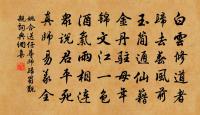 白雲修道者
歸去春風前
玉簡通仙籍
金丹駐母年
錦文江一色
酒氣雨相連
衆說君平死
真師易義全
姚合送任尊師歸蜀覲
親詞典網集